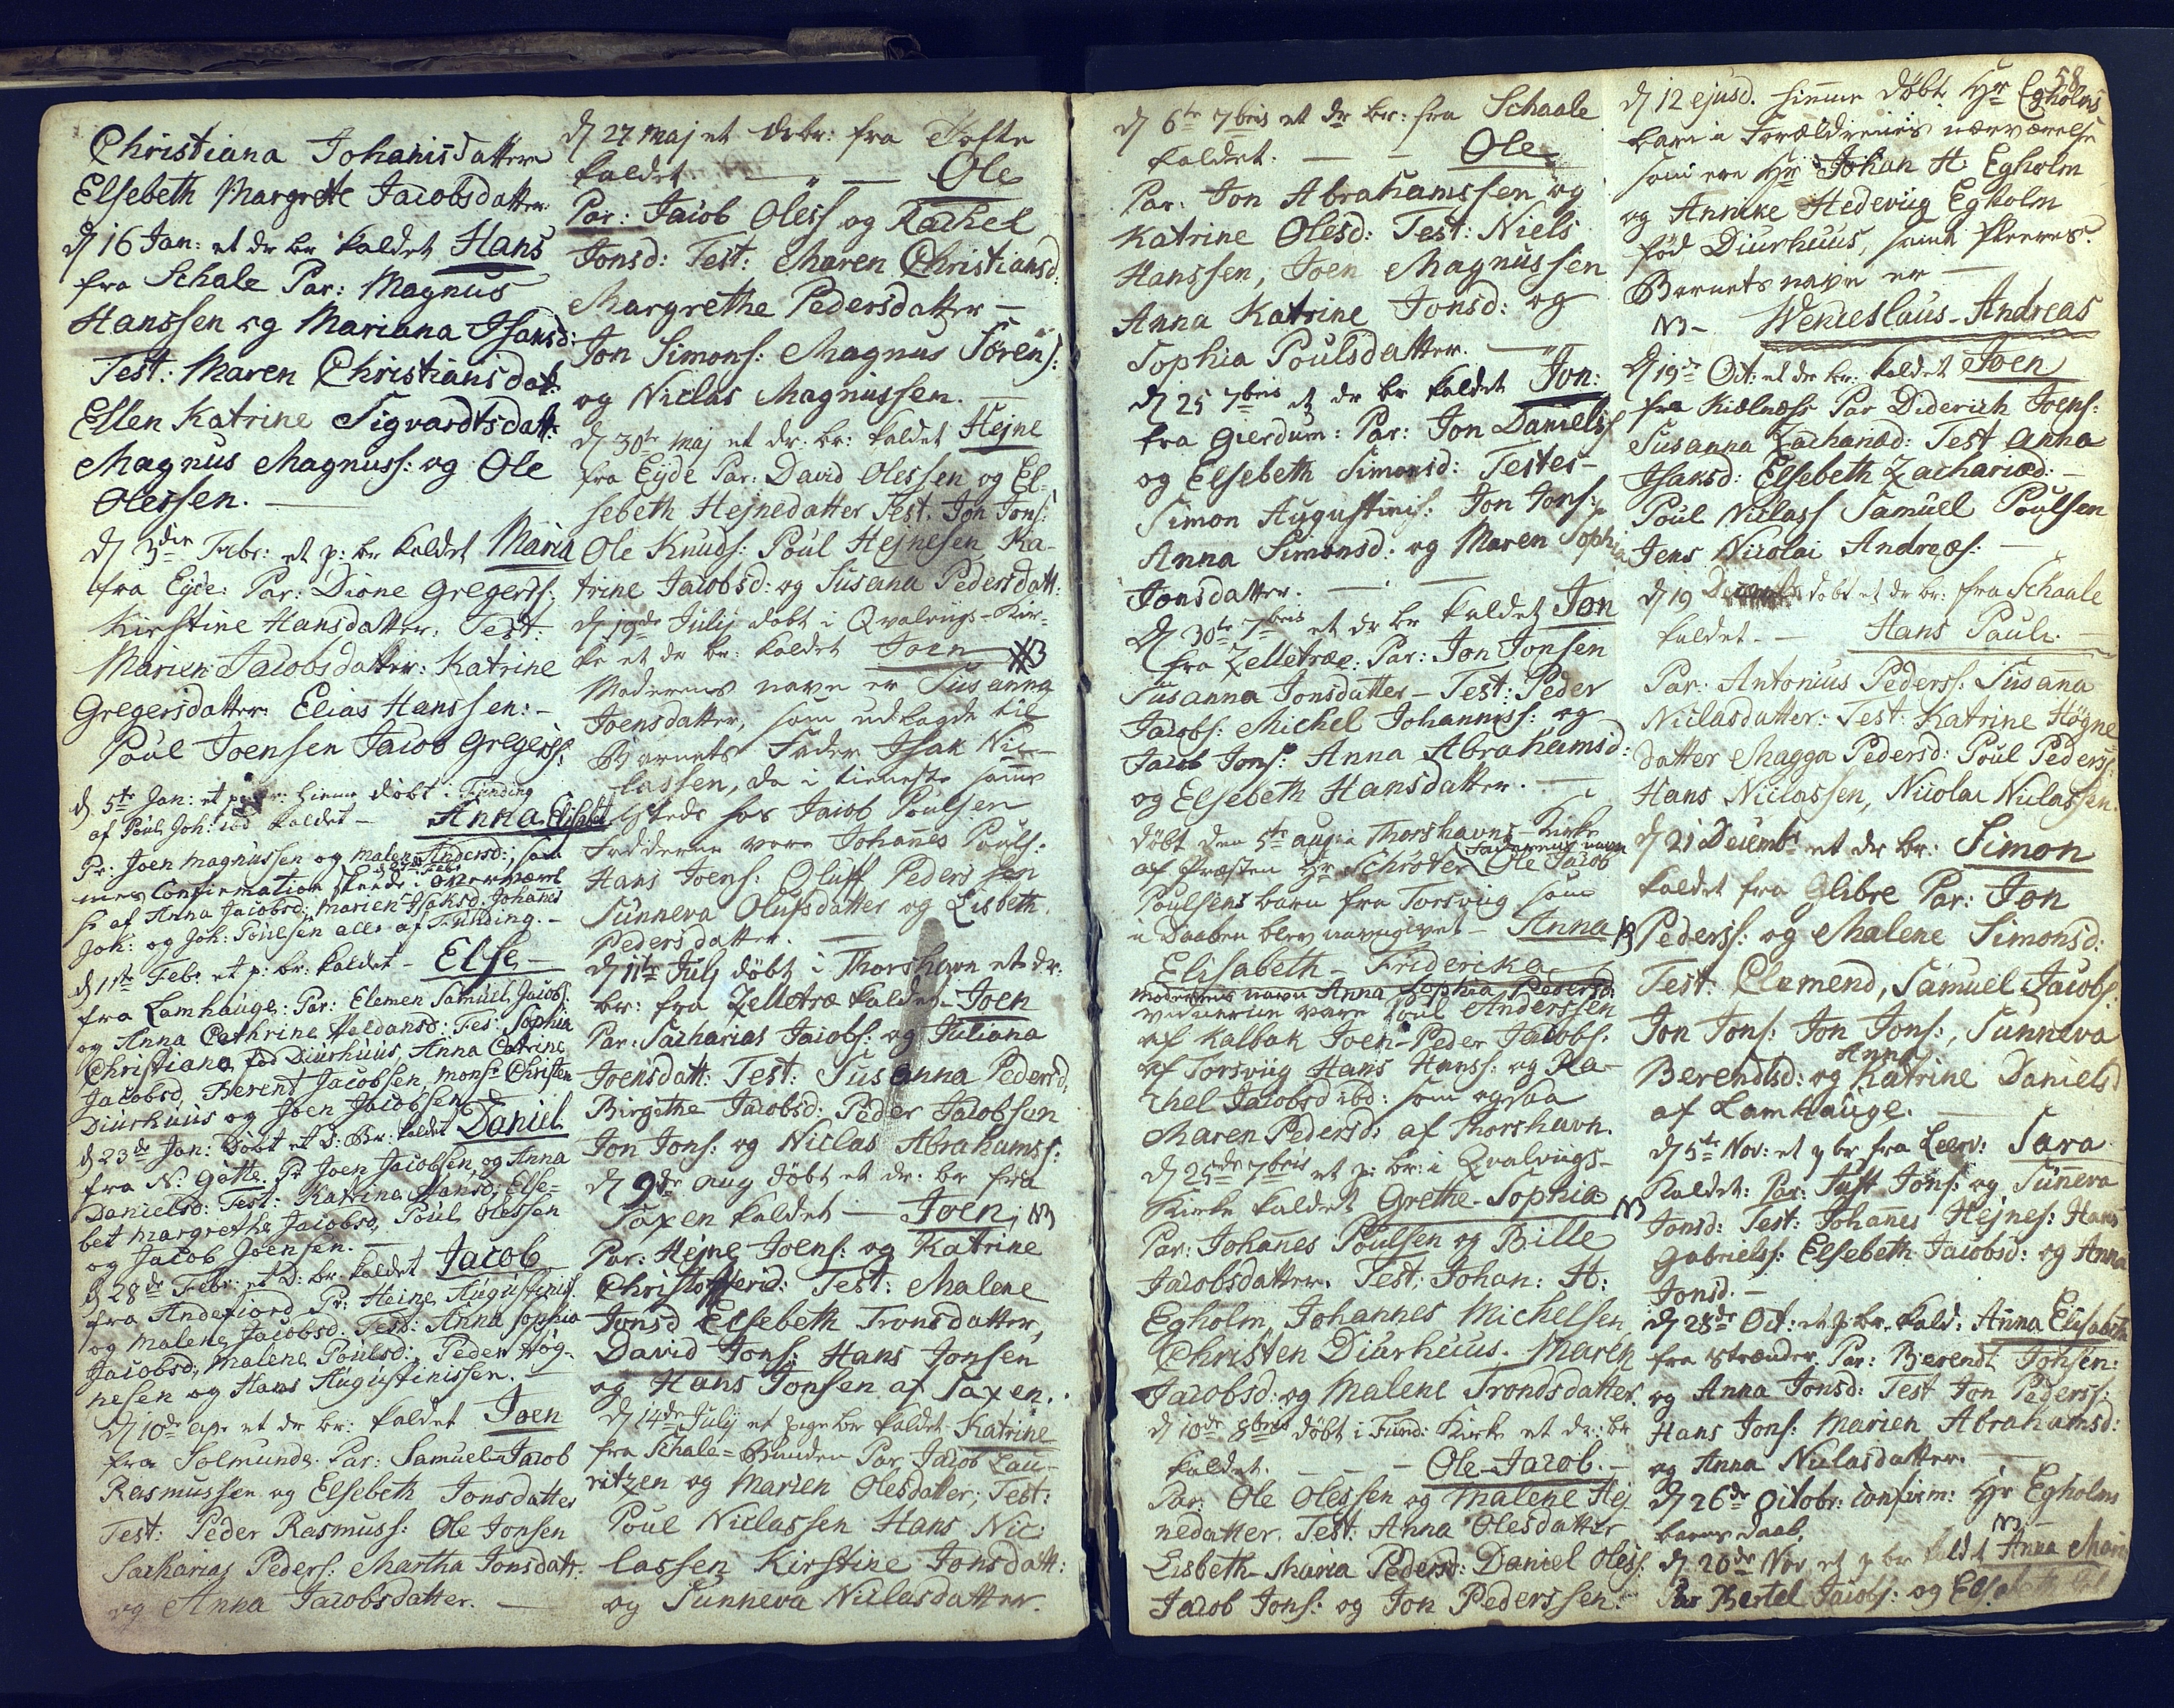 Christiana Johanisdatter
Elsebeth Margrette Jacobsdatter.
d 16 Jan: et dr br kaldet Hans
fra Schale Par: Magnus
Hanssen og Mariana Isansd:
Test: Maren Christiansdat:
Ellen Katrine Sigvardtsdatt:
Magnus Magnuss: og Ole
Olessen. —
d 3die Febr: et p: br kaldet Maria
fra Eyde: Par: Dione Gregerss:
Kirstine Hansdatter: Test:
Marien Jacobsdatter: Katrine
Gregersdatter: Elias Hanssen: -
Poul Joensen Jacob Gregerss:
d 5te Jan: et pige br: hiemme döbt i Funding
af Poul Joh: ibd kaldet - Anna Elisabet.
Pr: Joen Magnussen og Malene Andersd:, hvis
Confirmation skeede i overvært
se af Anna Jacobsd: Marien Isaksd: Johannes
Joh: og Joh: Poulsen alle af Funding. -
d 11te Feb: et p: br: kaldet - Else -
fra Lamhauge: Par: Clemen Samuel Jacobs:
og Anna Cathrine Haldansd: Tes: Sophia
Christiana fød Diurhuus, Anna Catrine
Jacobsd, Berent Jacobsen, Monsr Christen
Diurhuus og Joen Jacobsen —
d 23de Jan: Döbt et D: Br: kaldet Daniel
fra N: Gøtte. Pr Joen Jacobsen og Anna
Danielsd: Test: Katrina Hansd: Else-
bet Margrethe Jacobsd, Poul Olessen
og Jacob Joensen. —
d 28de Febr: et D: br: kaldet Jacob
fra Andefiord Pr: Heine Augustiniss.
og Malene Jacobsd: Test: Anna Sophia
Jacobsd, Malene Poulsd: Peder Høg-
nesen og Hans Augustinissen. —
d 10de Apr et dr br: kaldet Joen
fra Solmunde. Par: Samuel-Jacob
Rasmussen og Elsebeth Jonsdatter
Test: Peder Rasmuss: Ole Jonsen
Sacharias Peders: Martha Jonsdatt:
og Anna Jacobsdatter. —
d 27 Maj et dr br: fra Tofte
kaldet — " — Ole
Par: Jacob Oless og Rachel
Jonsd: Test: Maren Christiansd:
Margrethe Pedersdatter —
Jon Simons: Magnus Sörens:
og Niclas Magnussen. —
d 30te Maj et dr: br: kaldet Hejne
fra Eyde Par: David Olessen og El-
sebeth Hejnedatter Test. Jon Jons:
Ole Knuds: Poul Hejnesen Ka-
trine Jacobsd: og Susana Pedersdatt:
d 19de Julij dobt i Qvalvigs-Kir-
ke et dr br: kaldet Joen NB
Moderens navn er Susanna
Joensdatter, som udlagde til
Barnets Fader Isak Nic-
lassen, da i tieneste samme
steds hos Jacob Poulsen
Fadderne vare Johannes Pouls:
Hans Joens: Oluff Pedersen
Sunneva Olufsdatter og Lisbeth
Pedersdatter. —
d 11te Julj döbt i Thorshavn et dr:
br: fra Zelletræ kaldet Joen
Par: Sacharias Jacobs: og Juliana
Joensdatt: Test: Susanna Pedersd,
Birgithe Jacobsd: Peder Jacobsen
Jon Jons: og Niclas Abrahamss:
d 9de Aug döbt et dr: br fra
Saxen kaldet — Joen, NB
Par: Hejne Joens: og Katrine
Christoffersd: Test: Malene
Jonsd Elsebeth Tronsdatter,
David Jons: Hans Jonsen
og Hans Jonsen af Saxen.
d 14de Julij et pige br kaldet Katrine
fra Schale=Bunden Par Jacob Lau-
ritzen og Marien Olesdatter, Test:
Poul Niclassen Hans Nic-
lassen Kirstine Jonsdatt:
og Sunneva Niclasdatter.
d 6te 7bris et dr br: fra Schaale
kaldet. — — Ole
Par. Jon Abrahamssen og
Katrine Olesd: Test: Niels
Hanssen, Joen Magnussen
Anna Katrine Jonsd: og
Sophia Poulsdatter. — "
d 25 7bris et dr br kaldet Jon:
fra Gierdum: Par: Jon Danielss
og Elsebeth Simonsd: Testes-
Simon Augustinis: Jon Jons:
Anna Simonsd: og Maren Sophia
Jonsdatter. — —
d 30te 7bris et dr br kaldet Jon
fra Zelletræe: Par: Jon Jonsen
Susanna Jonsdatter - Test: Peder
Jacobs: Michel Johanniss: og
Jacob Jons: Anna Abrahamsd:
og Elsebeth Hansdatter. —
döbt den 5te aug: i Thorshavns-Kirke
af Præsten Hr Schrøter Faderens navn Ole Jacob
Poulsens barn fra Torsvig som
i Daaben blev navngivet - Anna NB
Elisabeth - Fridericka
Moderens navn Anna Sophia Pedersd:
vidnerne vare Poul Anderssen
af Kalbak Joen-Peder Jacobs:
af Torsvig Hans Hanss: og Ra-
chel Jacobsd ibd: som ogsaa
Maren Pedersd: af Thorshavn.
d 25de 7bris et p: br: i Qvalvigs-
Kirke kaldet Grethe-Sophia NB
Par: Johannes Poulsen og Bille
Jacobsdatter. Test: Johan: H:
Egholm, Johannes Michelsen,
Christen Diurhuus. Maren
Jacobsd: og Malene Trondsdatter.
d 10de 8bris döbt i Fund: Kirke et dr: br
kaldet. — — — Ole-Jacob. —
Par: Ole Olessen og Malene Hej-
nedatter. Test: Anna Olesdatter
Lisbeth-Maria Pedersd: Daniel Oless:
Jacob Jons: og Jon Pederssen.
58
d 12 ejusd. hiemme döbt Hr Egholms
barn i Forældrenes nærværelse
som ere Hr Johan H: Egholm
og Annike Hedevig Egholm
fød Diurhuus, samt fleeres.
Barnets navn er —
NB - Wenceslaus-Andreas
d 19de Oct: et dr br: kaldet Joen
fra Kielnæss Par Diderich Joens:
Susanna Zachariæd: Test Anna
Isaksd: Elsebeth Zachariæd: -
Poul Niclass Samuel Poulsen
Jens Nicolai Andreæs: —
d 19 Decembr döbt et dr br: fra Schaale
kaldet - — Hans Paule. —
Par: Antonius Pederss: Susanna
Niclasdatter: Test: Katrine Högne-
datter Magga Pedersd: Poul Pederss:
Hans Niclassen, Nicolai Niclassen.
d 21 Decembr et dr br: Simon
kaldet fra Glibre Par: Jon
Pederss: og Malene Simonsd:
Test: Clemend, Samuel Jacobs:
Jon Jons: Jon Jons:, Sunneva
Berendtsd: og Anna Katrine Danielsd
af Lamhauge. —
d 5te Nov: et p br fra Leerv: Sara
kaldet: Par: Just Jons: og Sunneva
Jonsd: Test: Johannes Hejnes: Hans
Gabrielss: Elsebeth Jacobsd: og Anna
Jonsd. -
d 28de Oct: et p: br. kald: Anna Elisabeth
fra Strænder Par: Berendt Jonsen:
og Anna Jonsd: Test Jon Pederss:
Hans Jons: Marien Abrahamsd:
og Anna Niclasdatter. —
d 26de Octobr: confirm: Hr Egholms
barns daab.
d 20de Nov et p br kaldt NB Anna Maria
Par Bertel Jacobs: og Elsebeth